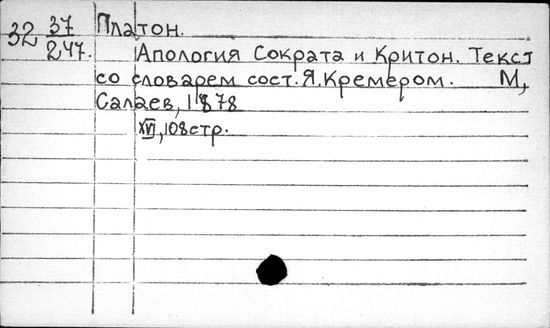 32 37/247. Платон.
Апология Сократа и Критон. Текст
со словарем сост. Я. Кремером. М,
Салаев, 1878
XVI, 108 стр.